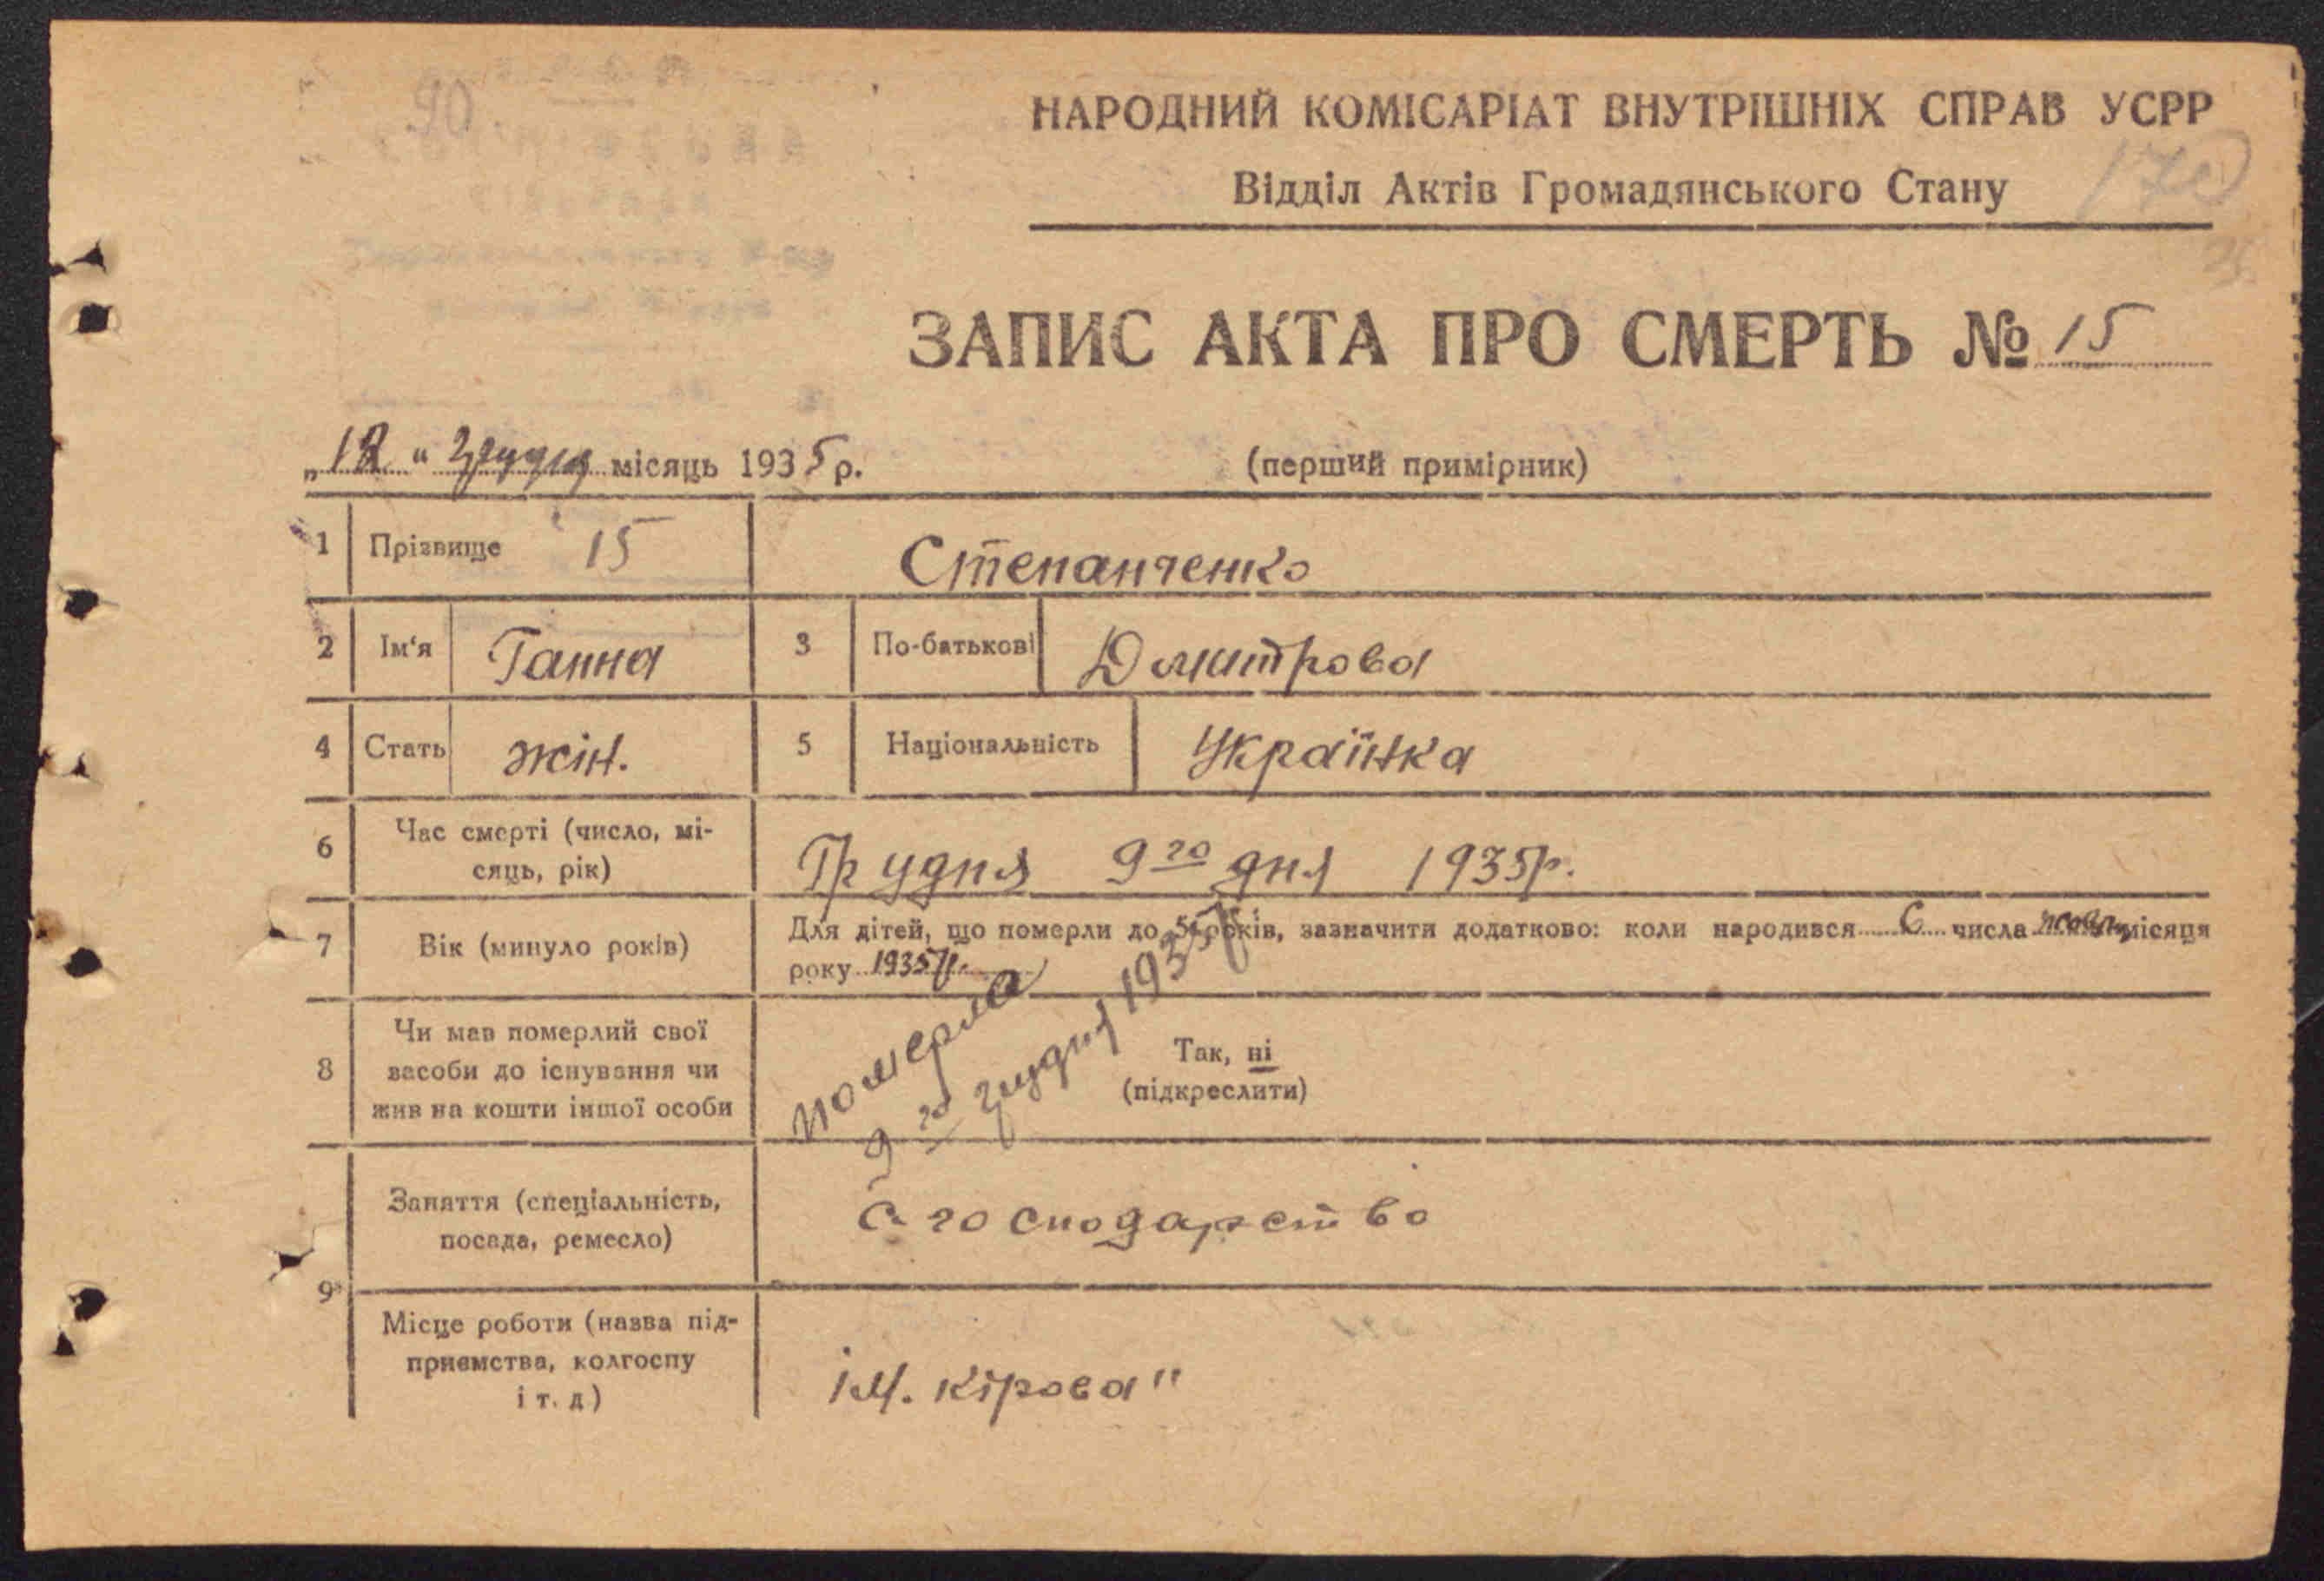 90
НАРОДНИЙ КОМІСАРІАТ ВНУТРІШНІХ СПРАВ УСРР
Відділ Актів Громадянського Стану
170
ЗАПИС АКТА ПРО СМЕРТЬ № 15
„12" грудня місяць 1935 р.
(перший примірник)
1 Прізвище 15 Степанченко
2 Ім'я Ганна 3 По-батькові Дмитрова
4 Стать жін. 5 Національність Українка
6 Час смерті (число, мі-
сяць, рік) Грудня 9го дня 1935р.
7 Вік (минуло років) Для дітей, що померли до 5 років, зазначити додатково: коли народився 6 числа жовтн місяця
року 1935р.
померла
9го грудня 1935р
8 Чи мав померлий свої
засоби до існування чи
жив на кошти іншої особи
Так, ні
(підкреслити)
9 Заняття (спеціальність,
посада, ремесло) С. господарство
Місце роботи (назва під-
приємства, колгоспу
і т. д) ім. Кірова"